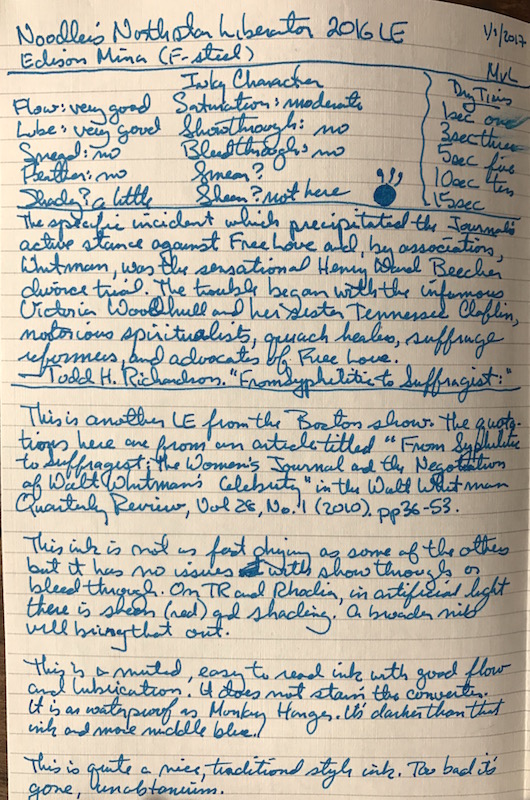 Noodler's North star Liberator 2016 LE 1/1/2017
Edison Mina (F-steel) MvL
Inky Character Dry Times
Flow: very good Saturation: moderate 1sec one
Lube: very good Showthrough: no 3sec three
Spread: no Bleedthrough: no 5sec five
Feather: no Smear? 10sec ten
Shady? a little Sheen? not here 15sec
The specific incident which precipitated the Journal's
active stance against Free Love and, by association,
Whitman, was the sensational Henry Ward Beecher
divorce trial. The trouble began with the infamous
Victoria Woodhull and her sister Tennessee Claflin,
notorious spiritualists, quack healers, suffrage
reformers, and advocates of Free Love.
—Todd H. Richardson. "From Syphilitic to Suffragist:"
This is another LE from the Boston show. The quota-
tions here are from an article titled "From Syphilitic
to Suffragist: The Women's Journal and the Negotiation
of Walt Whitman's Celebrity" in the Walt Whitman
Quarterly Review, Vol 28, No. 1 (2010). pp36-53.
This ink is not as fast drying as some of the others
but it has no issues with show through or
bleed through. On TR and Rhodia, in artificial light
there is sheen (red) and shading. A broader nib
will bring that out.
This is a muted, easy to read ink with good flow
and lubrication. It does not stain the converter.
It is as waterproof as Monkey Hanger. It's darker than that
ink and more middle blue.
This is quite a nice, traditional style ink. Too bad it's
gone, unobtanium.